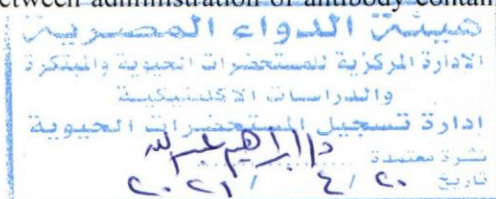 between administration of antibody contain
هيئة الدواء المصرية
الادارة المركزية للمستحضرات الحيوية والمبتكرة
والدراسات الاكلينيكية
ادارة تسجيل المستحضرات الحيوية
د/ ابراهيم عبدالله
نشرة معتمدة
تاريخ ٢٠ / ٤ / ٢٠٢١